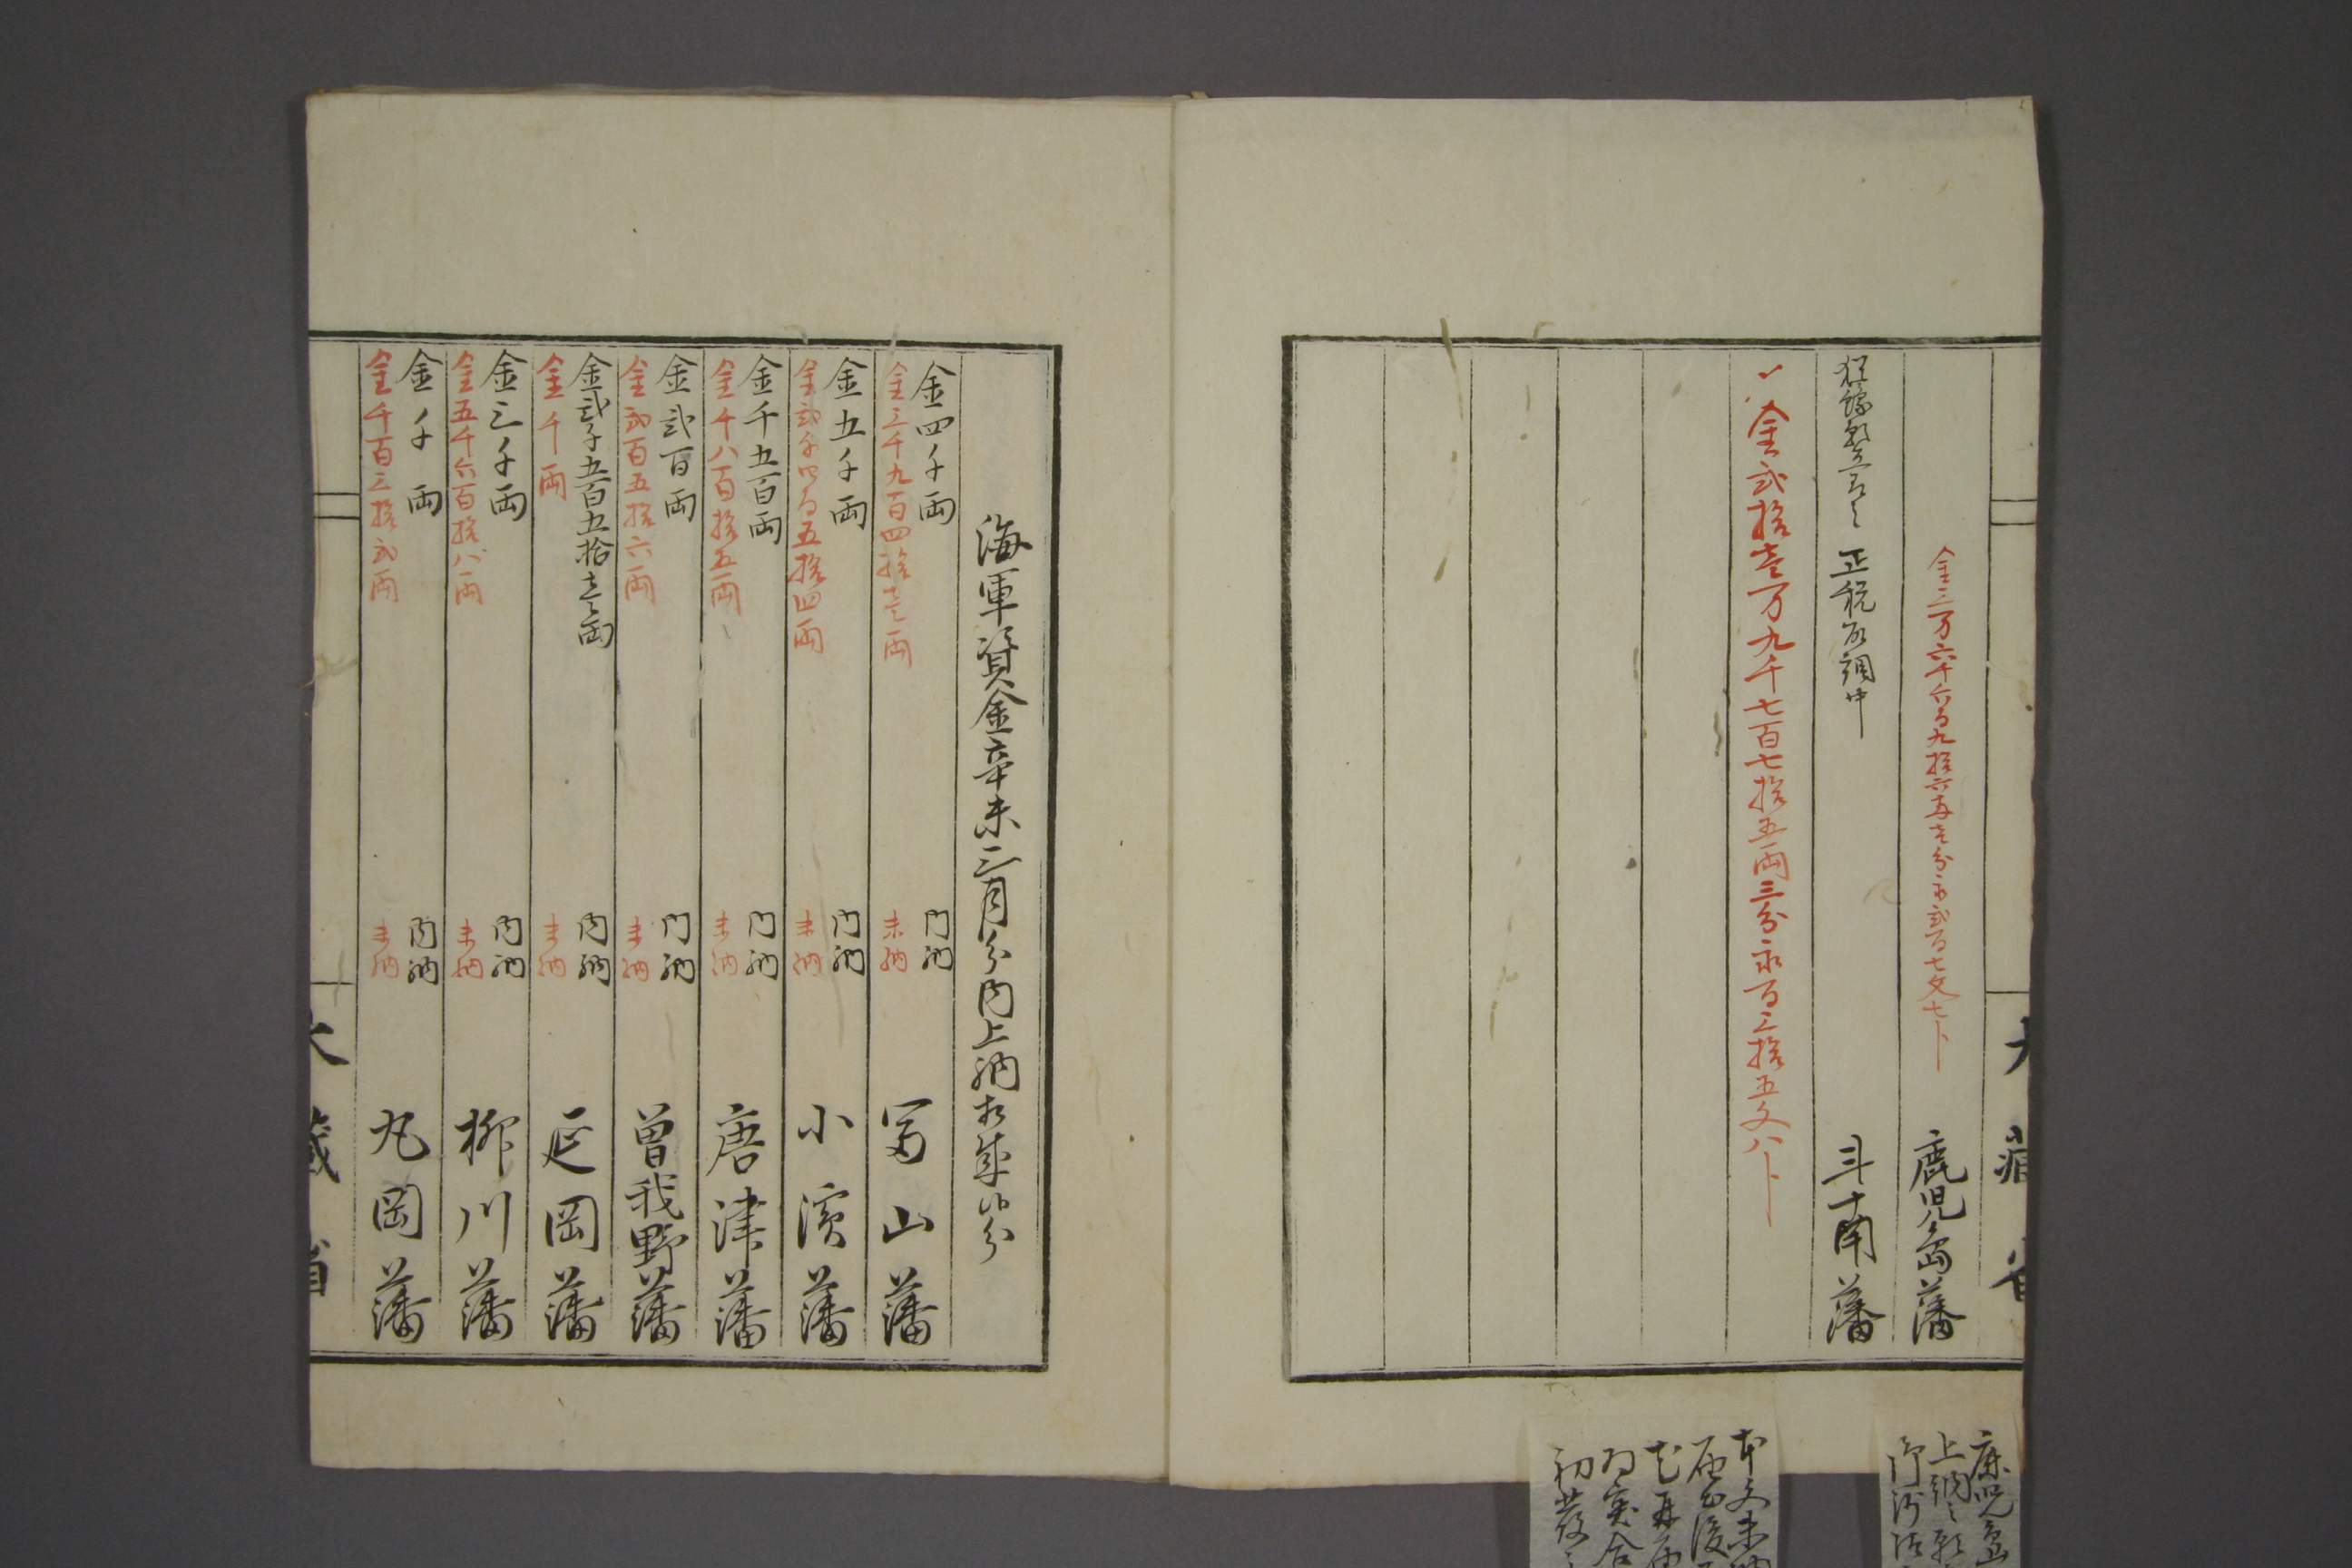 大藏省
金三万六千六百九拾六両壱分永弐百七文七卜
鹿児島藩
正税取調中
斗南藩
〆金弐拾壱万九千七百七拾五両三分永百三拾五文八卜
鹿児島
上納之
本文未納
初発
海軍資金辛未三月分内上納相成候分
金四千両 内納
金三千九百四拾壱両 未納
富山藩
金五千両 内納
金弐千四百五拾四両 未納
小濱藩
金千五百両 内納
金千八百拾五両 未納
唐津藩
金弐百両 内納
金弐百五拾六両 未納
曽我野藩
金弐千五百五拾壱両 内納
金千両 未納
延岡藩
金三千両 内納
金五千六百拾八両 未納
柳川藩
金千両 内納
金千百三拾弐両 未納
丸岡藩
大藏省